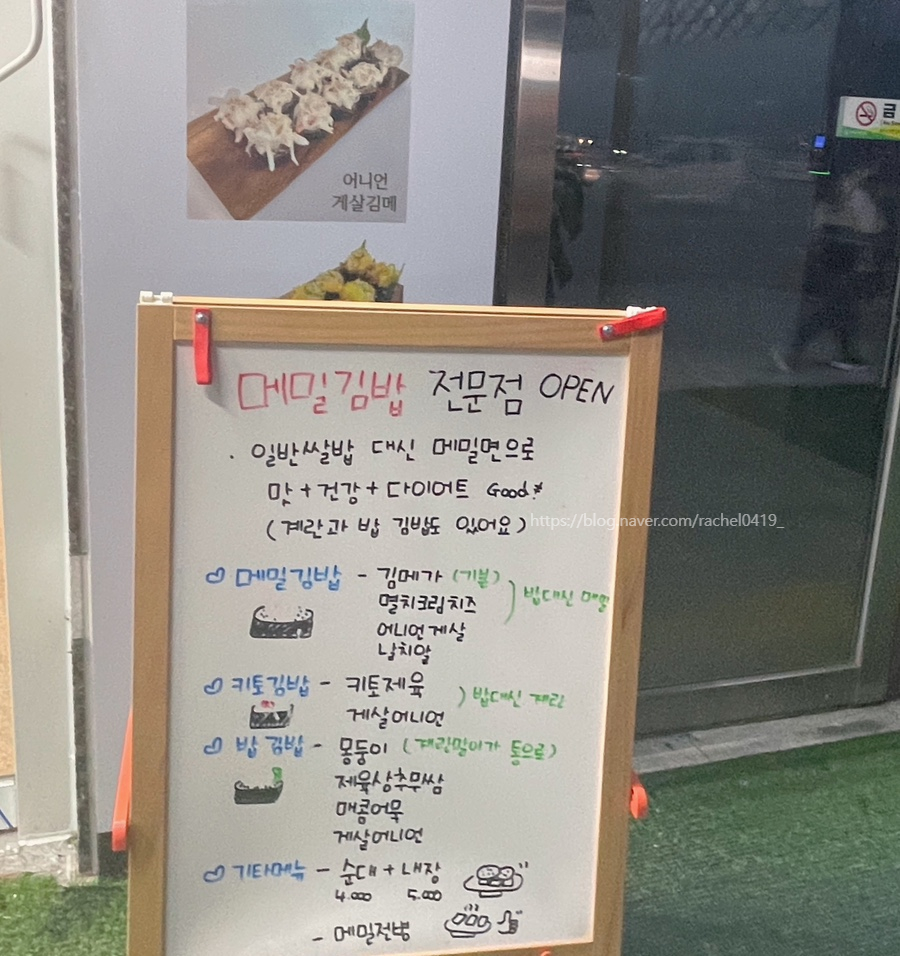 어니언
게살김메
금
메밀김밥 전문점 OPEN
· 일반쌀밥 대신 메밀면으로
맛+건강+다이어트 Good!
(계란과 밥 김밥도 있어요)
https://blog.naver.com/rachel0419_
메밀김밥 - 김메가 (기본)
멸치크림치즈
어니언게살
날치알
밥대신 메밀
키토김밥 - 키토제육
게살어니언
밥대신 계란
밥김밥 - 몽둥이 (계란말이가 통으로)
제육상추무쌈
매콤어묵
게살어니언
기타메뉴 - 순대 + 내장
4.000 5.000
- 메밀전병